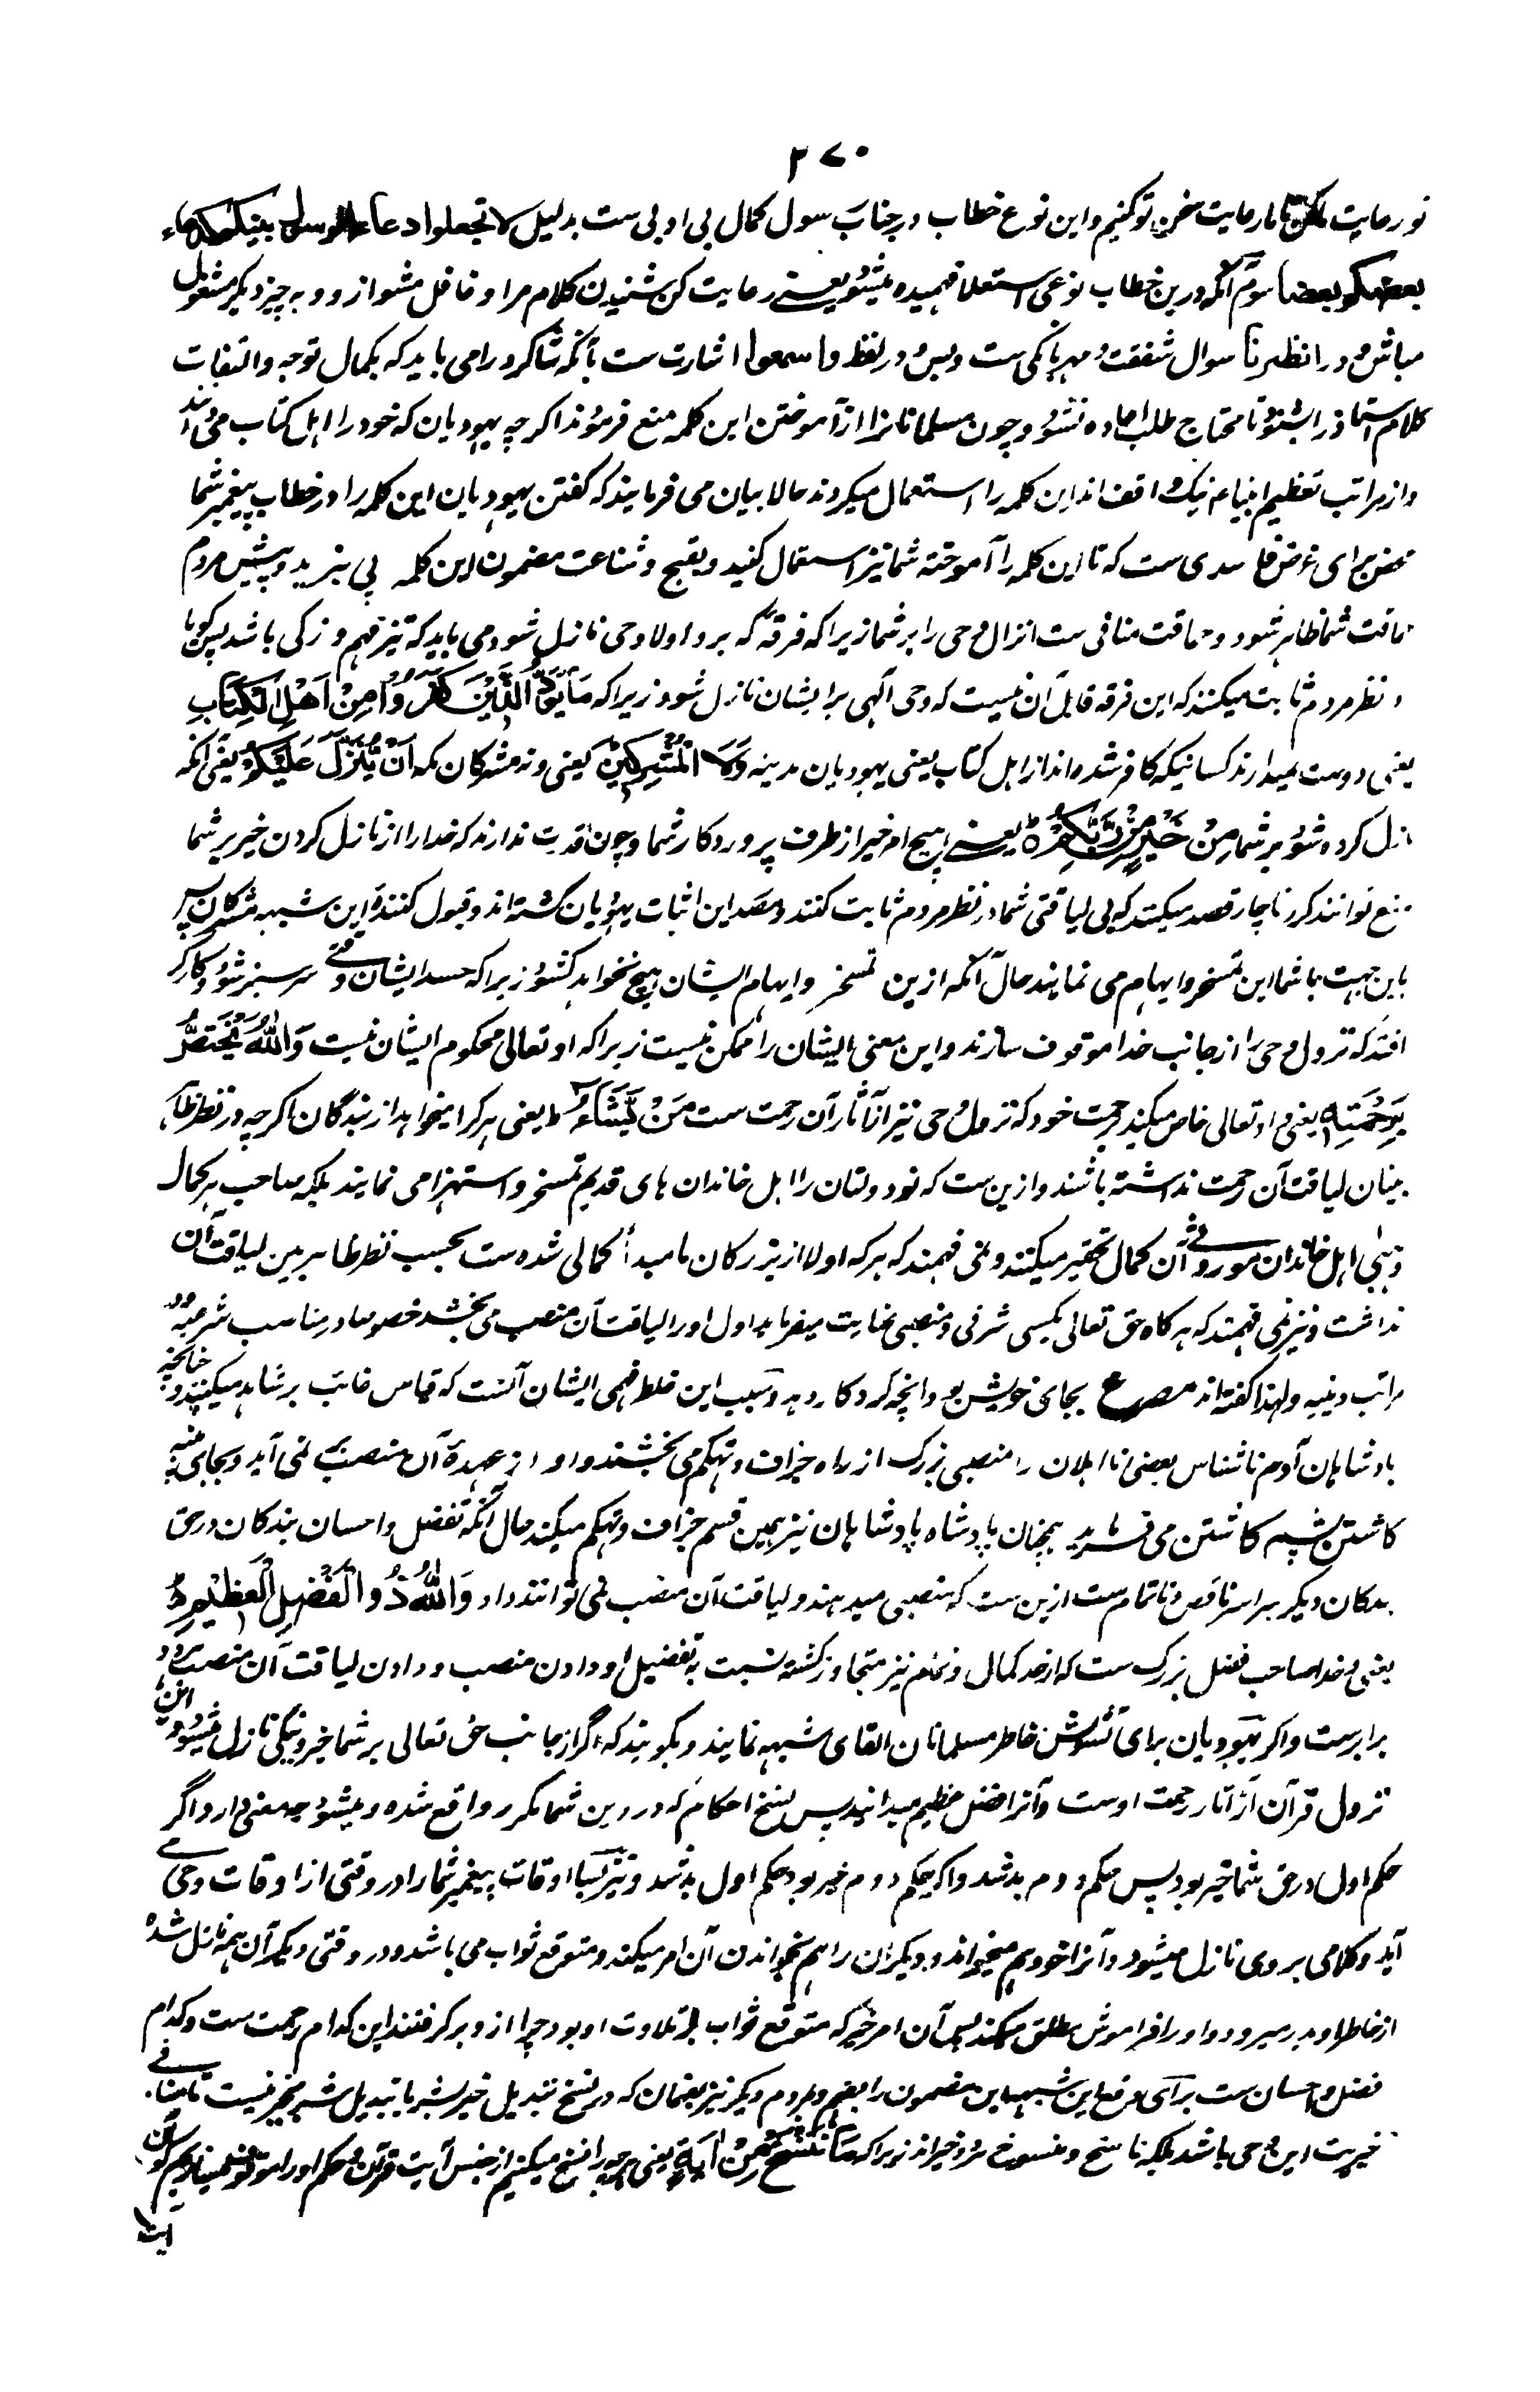 ۳۷۰
تو رعایت کن تا ما رعایت سخن تو کنیم و این نوع خطاب در جناب رسول کمال بی ادبی ست بدلیل لا تجعلوا دعاء الرسول بینکم کدعاء
بعضکم بعضا سوم آنکه درین خطاب نوعی استعلا فهمیده میشود یعنی رعایت کن شنیدن کلام مرا و غافل مشو ازو و به چیز دیگر مشغول
مباش و در انظرنا سوال شفقت و مهربانگی ست و بس و در لفظ واسمعوا اشارت ست بآنکه شاگرد را می باید که بکمال توجه و التفات
کلام استاد را بشنود تا محتاج طلب اعاده نشود و چون مسلمانانرا از آموختن این کلمه منع فرمودند اگرچه یهودیان که خود را اهل کتاب میدانند
و از مراتب تعظیم انبیاء نیک واقف اند این کلمه را استعمال میکردند حالا بیان می فرمایند که گفتن یهودیان این کلمه را در خطاب پیغمبر شما
محض برای غرض فاسدی ست که تا این کلمه را آموخته شما نیز استعمال کنید و بقبح و شناعت مضمون این کلمه پی نبرید و پیش مردم
حماقت شما ظاهر شود و حماقت منافی ست انزال وحی را بر شما زیرا که فرقه که برو اولا وحی نازل شود می باید که تیز فهم و زکی باشد پس گویا
در نظر مردم ثابت میکنند که این فرقه قابل آن نیست که وحی الهی بر ایشان نازل شود زیرا که مَا یَوَدُّ الَّذِیْنَ کَفَرُوْا مِنْ اَهْلِ الْکِتَابِ
یعنی دوست نمیدارند کسانیکه کافر شده اند از اهل کتاب یعنی یهودیان مدینه وَلَا الْمُشْرِکِیْنَ یعنی و نه مشرکان مکه اَنْ یُّنَزَّلَ عَلَیْکُمْ یعنی آنکه
نازل کرده شود بر شما مِنْ خَیْرٍ مِّنْ رَّبِّکُمْ ط یعنی هیچ امر خیر از طرف پروردگار شما و چون قدرت ندارند که خدا را از نازل کردن خیر بر شما
منع توانند کرد ناچار قصد میکنند که بی لیاقتی شما در نظر مردم ثابت کنند و مصد این اثبات یهودیان گشته اند و قبول کننده این شبهه مشرکان پس
باین جهت با شما این تمسخر و ایهام می نمایند حال آنکه ازین تمسخر و ایهام ایشان هیچ نخواهد کشود زیرا که حسد ایشان وقتی سرسبز شود و کارگر
افتد که نزول وحی را از جانب خدا موقوف سازند و این معنی ایشان را ممکن نیست زیرا که او تعالی محکوم ایشان نیست وَاللّٰهُ یَخْتَصُّ
بِرَحْمَتِهٖ یعنی و او تعالی خاص میکند برحمت خود که نزول وحی نیز از آثار آن رحمت ست مَنْ یَّشَآءُ ط یعنی هر کرا میخواهد از بندگان اگرچه در نظر ظاهر
بینان لیاقت آن رحمت نداشته باشند و ازین ست که نو دولتان را اهل خاندان های قدیم تمسخر و استهزا می نمایند بلکه صاحب هر کمال
وهبی اهل خاندان موروثی آن کمال تحقیر میکنند و نمی فهمند که هر که اولا از بزرگان ما مبدأ کمالی شده ست بحسب نظر ظاهر بین لیاقت آن
نداشت و نیز نمی فهمند که هرگاه حق تعالی بکسی شرفی و منصبی عنایت میفرماید اول او را لیاقت آن منصب می بخشد خصوصا در مناصب شرعیه و
مراتب دینیه و لهذا گفته اند مصرع بجای خویش بود آنچه کردگار دهد و سبب این غلط فهمی ایشان آنست که قیاس غائب بر شاهد میکنند و چنانچه
بادشاهان آدم ناشناس بعضی نااهلان را منصبی بزرگ از راه جزاف و تهکم می بخشند و او از عهده آن منصب بر نمی آید و بجای پنبه
کاشتن پشم کاشتن می فرماید همچنان بادشاه بادشاهان نیز همین قسم جزاف و تهکم میکند حال آنکه تفضل و احسان بندگان در حق
بندگان دیگر سراسر ناقص و ناتمام ست ازین ست که منصبی میدهند و لیاقت آن منصب نمی توانند داد وَاللّٰهُ ذُو الْفَضْلِ الْعَظِیْمِ ط
یعنی و خدا صاحب فضل بزرگ ست که از حد کمال و تمام نیز متجاوز گشته نسبت به تفضیل او دادن منصب و دادن لیاقت آن منصب هر دو
برابرست و اگر یهودیان برای تشویش خاطر مسلمانان القای شبهه نمایند و بگویند که اگر از جانب حق تعالی بر شما خیر و نیکی نازل میشود و این
نزول قرآن از آثار رحمت اوست و آنرا فضل عظیم میدانید پس نسخ احکام که در دین شما مکرر واقع شده و میشود چه معنی دارد اگر
حکم اول در حق شما خیر بود پس حکم دوم بد شد و اگر حکم دوم خیر بود حکم اول بد شد و نیز بسا اوقات پیغمبر شما را در وقتی از اوقات وحی می
آید و کلامی بر وی نازل میشود و آنرا خود هم میخواند و دیگران را هم بخواندن آن امر میکند و متوقع ثواب می باشد و در وقتی دیگر آن همه نازل شده
از خاطر او بدر میرود و او را فراموش مطلق میکند پس آن امر خیر که متوقع ثواب بر تلاوت او بود چرا ازو بر گرفتند این کدام رحمت ست و کدام
فضل و احسان ست برای دفع این شبهه این مضمون را بفهم و بمردم دیگر نیز بفهمان که در نسخ تبدیل خیر بشر یا تبدیل شر بخیر نیست تا منافی
خیریت این وحی باشد بلکه ناسخ و منسوخ هر دو خیر اند زیرا که مَا نَنْسَخْ مِنْ اٰیَةٍ یعنی هر چه را نسخ میکنیم از جنس آیت قرآن و حکم او را موقوف میسازیم گو آن
آیت